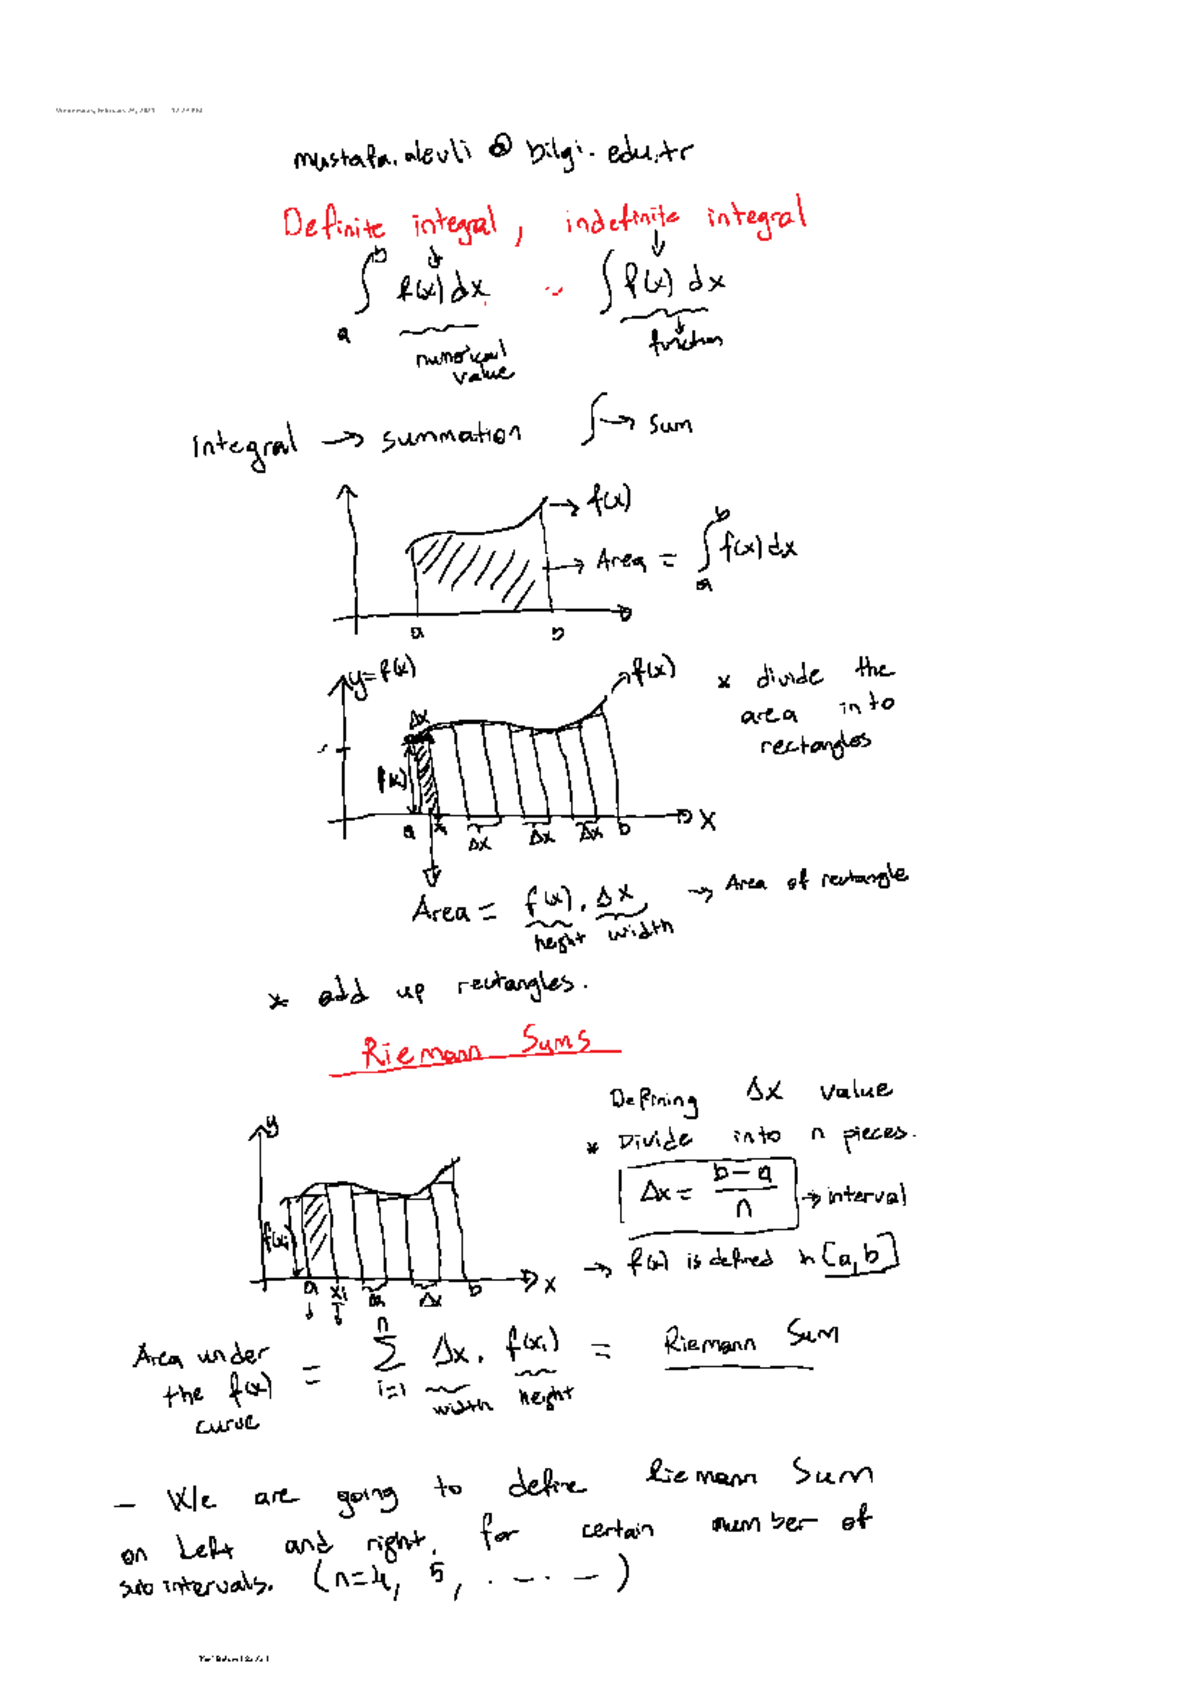 mustafa.alevli @ bilgi.edu.tr
Definite integral, indefinite integral
∫ₐᵇ f(x) dx ∫ f(x) dx
numerical value
function
Integral → summation ∫ → sum
→ f(x)
→ Area = ∫ₐᵇ f(x) dx
a b
y = f(x)
Δx
f(x)
f(x)
* divide the
area into
rectangles
a x₁ Δx Δx Δx b x
Area = f(x) . Δx → Area of rectangle
height width
* add up rectangles.
Riemann Sums
Defining Δx value
* Divide into n pieces.
Δx = (b − a)/n → interval
→ f(x) is defined in [a, b]
y
f(xᵢ)
a xᵢ Δx b x
Area under
the f(x)
curve
= ∑ᵢ₌₁ⁿ Δx . f(xᵢ) = Riemann Sum
width height
- We are going to define Riemann Sum
on Left and right, for certain number of
subintervals. (n=4, 5, . – . –)